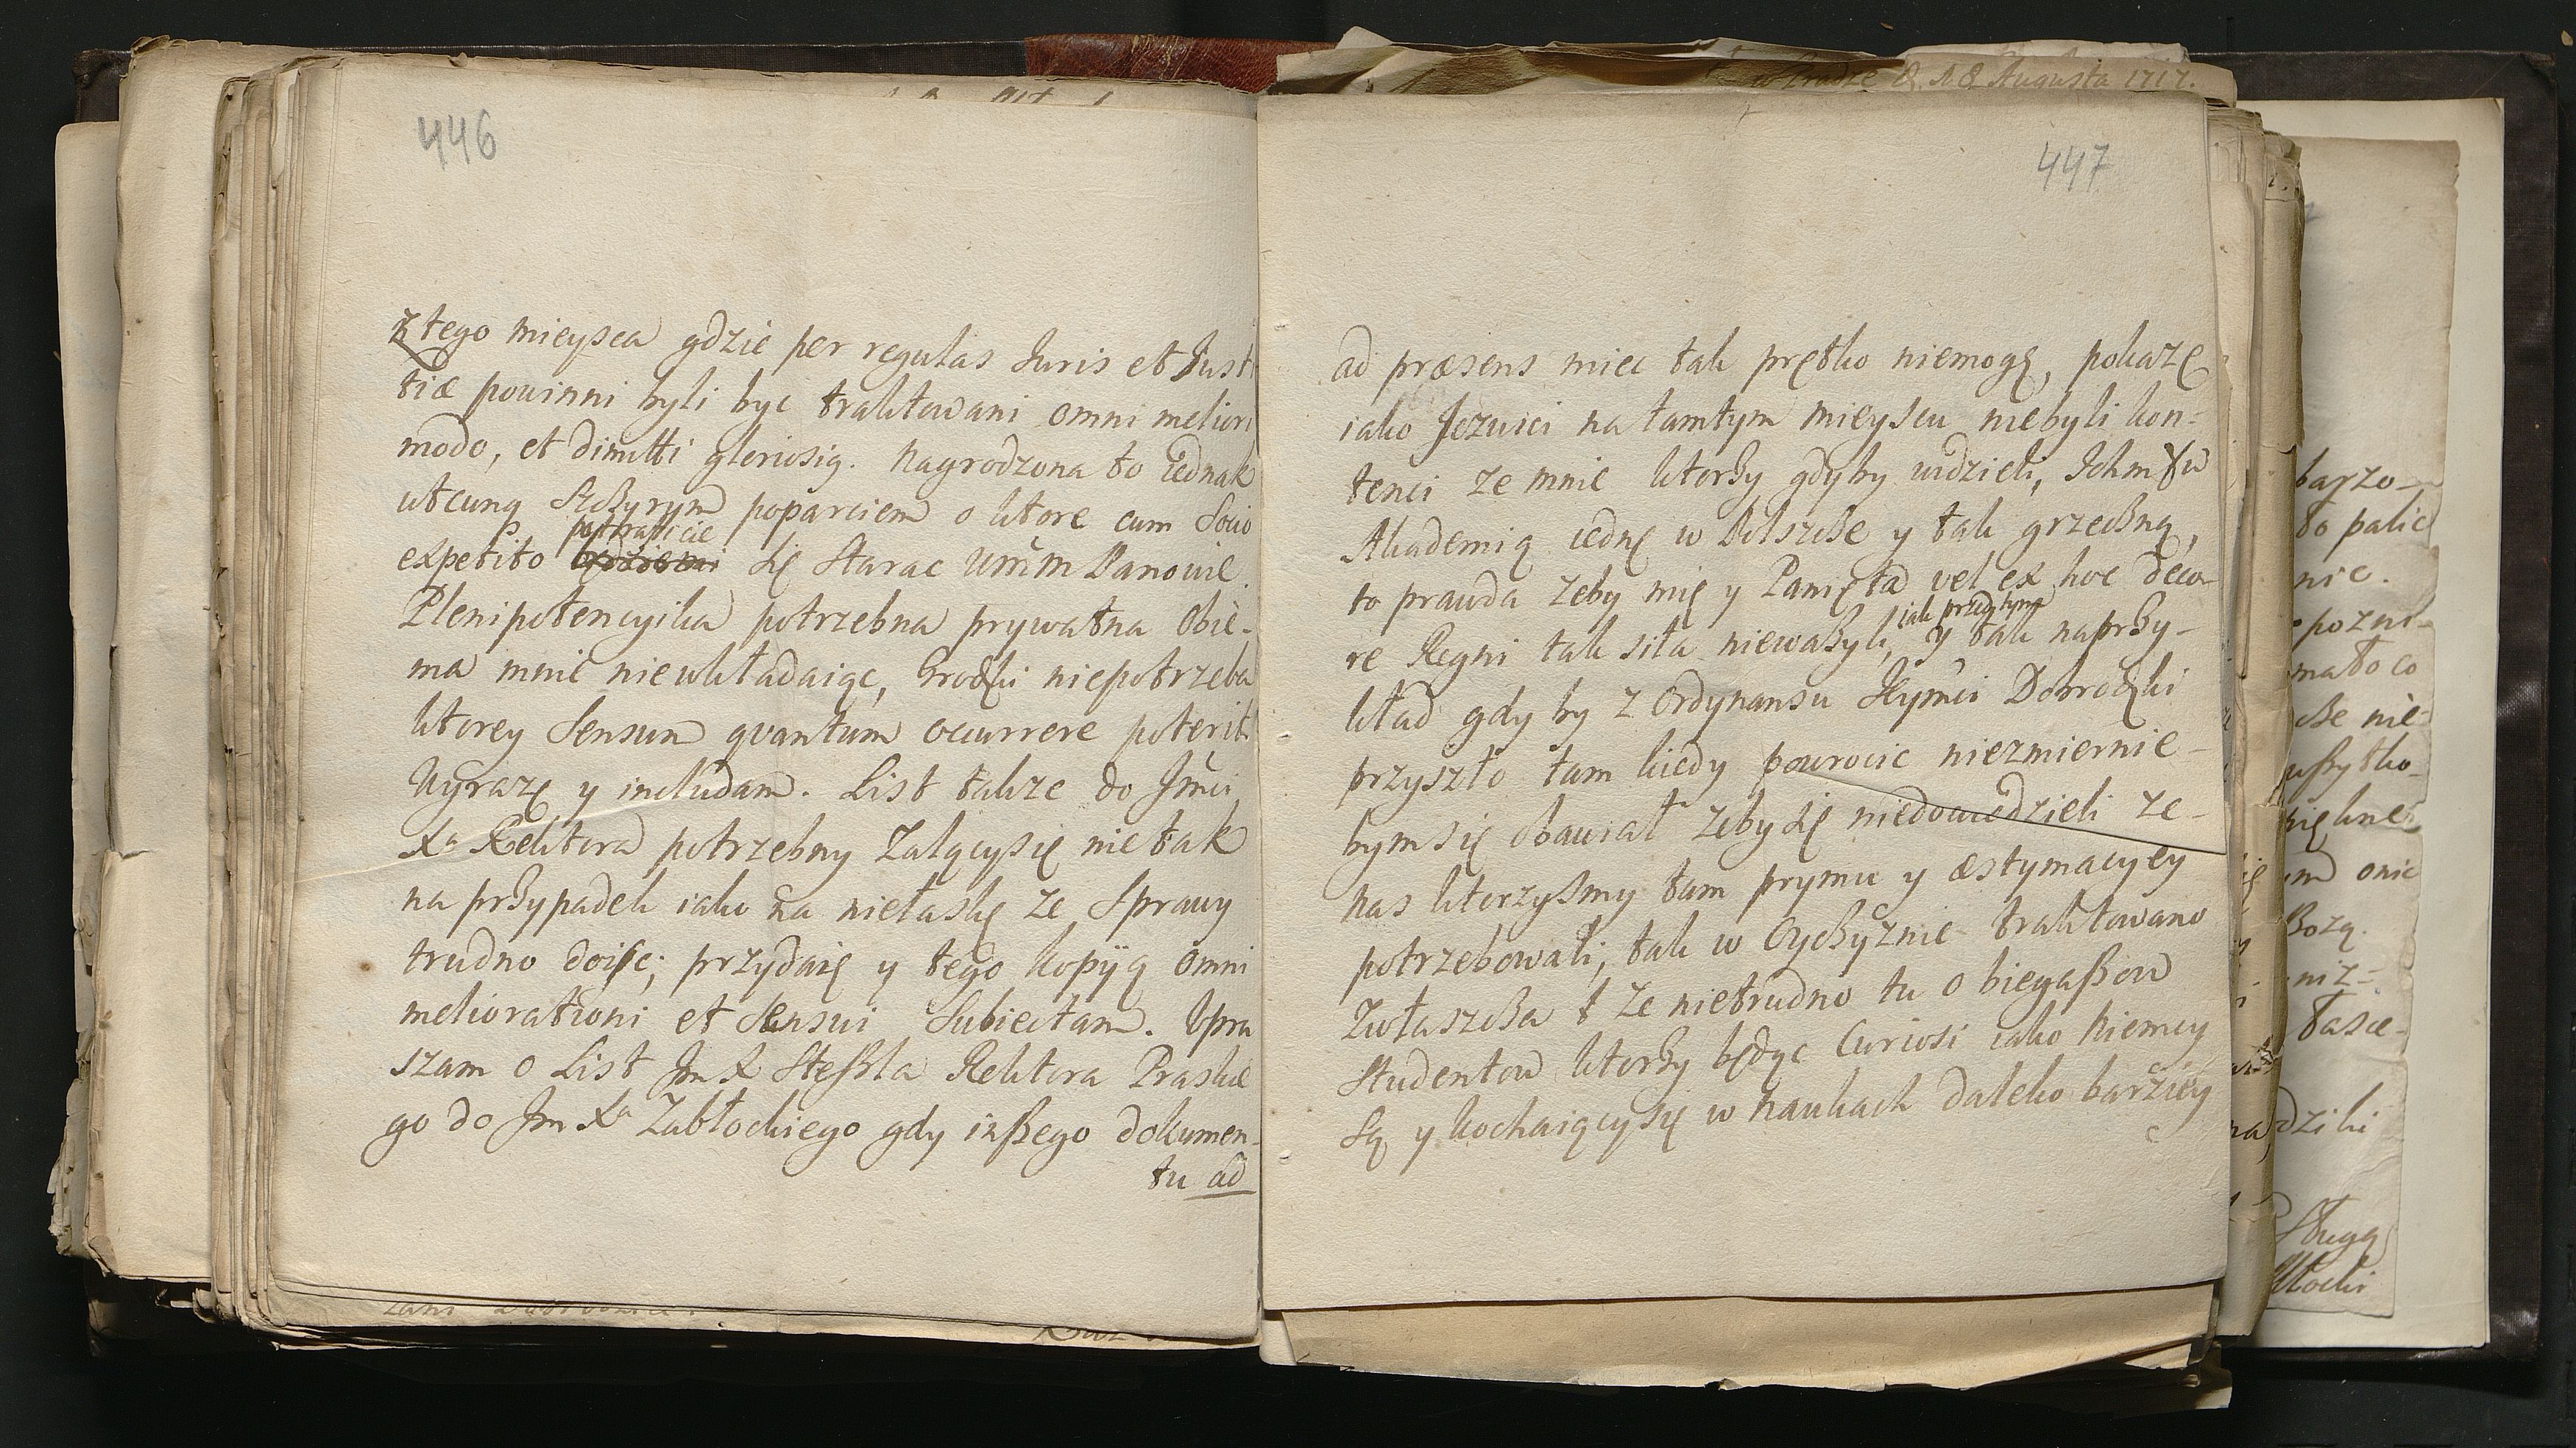 446
z tego mieysca gdzie per regulas Juris et Justi
tiæ powinni byli byc traktowani omni meliori
modo, et dimitti gloriosią. Nagrodzona to iednak
utcunq szczyrym poparciem o ktore cum Socio
potraficie
expetito będziemi się starac Umm Panowie.
Plenipotencyika potrzebna prywatna obie-
ma mnie niewkładaiąc, Grodzki niepotrzeba
ktorey Sensum qvantum occurrere poterit
Wyrazę y includam. List także do Jmci
Xa Rektora potrzebny Zalącysię nie tak
na przypadek iako na niełaskę ze Sprawy
trudno doisc; przydaię y tego kopyią omni
meliorationi et Sensui Subiectam. Upra
szam o List Jm X Steszla Rektora Praskie
go do Jm Xa Zabłockiego gdy inszego dokumen-
tu ad
w Pradze d. 8 Augusta 1717.
447
ad præsens miec tak prętko niemogę, pokazę
iako Jezuici na tamtym mieyscu niebyli kon-
tenci ze mnie ktorzy gdyby widzieli, Ichm XX
Akademią iednę w Polszcze y tak grzeczną,
to prawda zeby mię y Panięta vel ex hoc deco-
iak przedtym
re Regni tak siła niewazyli, y tak naprzy-
kład gdy by z Ordynansu Ilymci Dobrodzki
przyszło tam kiedy powrocic niezmiernie-
bym się obawiał zeby się niedowiedzieli ze-
nas ktorzysmy tam prymu y æstymacyey
potrzebowali, tak w Oyczyznie traktowano
Zwłaszcza ze nietrudno tu o biegaszow
Studentow ktorzy będąc Curiosi iako Niemcy
Są y kochaiącysię w naukach daleko barziey
barzo-
to palic
nic.
małoco
Bozą.
niz-
dziki
Sługa